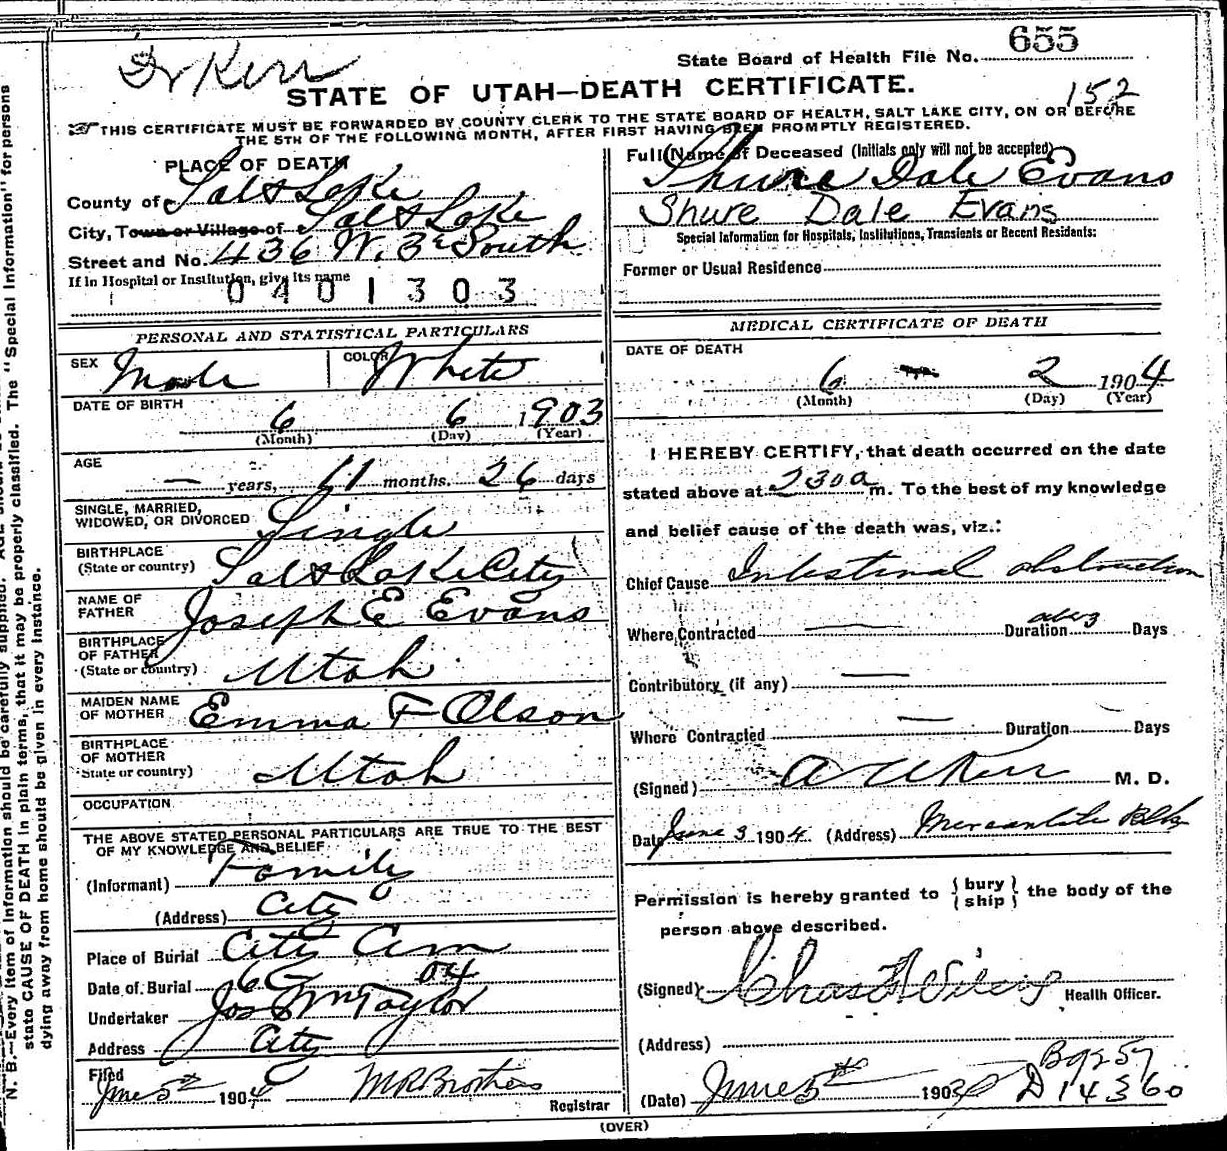 Dr Kerr
State Board of Health File No. 655
STATE OF UTAH—DEATH CERTIFICATE.
152
THIS CERTIFICATE MUST BE FORWARDED BY COUNTY CLERK TO THE STATE BOARD OF HEALTH, SALT LAKE CITY, ON OR BEFORE
THE 5TH OF THE FOLLOWING MONTH, AFTER FIRST HAVING BEEN PROMPTLY REGISTERED.
PLACE OF DEATH
County of Salt Lake
City, Town or Village of Salt Lake
Street and No. 436 W. 3d South
If in Hospital or Institution, give its name
0401303
PERSONAL AND STATISTICAL PARTICULARS
SEX Male COLOR White
DATE OF BIRTH
6 6 1903
(Month) (Day) (Year)
AGE
— years, 11 months, 26 days
SINGLE, MARRIED,
WIDOWED, OR DIVORCED Single
BIRTHPLACE
(State or country) Salt Lake City
NAME OF
FATHER Joseph E Evans
BIRTHPLACE
OF FATHER
(State or country) Utah
MAIDEN NAME
OF MOTHER Emma F Olson
BIRTHPLACE
OF MOTHER
State or country) Utah
OCCUPATION
THE ABOVE STATED PERSONAL PARTICULARS ARE TRUE TO THE BEST
OF MY KNOWLEDGE AND BELIEF
(Informant) Family
(Address) City
Place of Burial City Cem
Date of Burial 6 04
Undertaker Jos Wm Taylor
Address City
Filed
June 5th 1904 M R Brothers
Registrar
Full Name of Deceased (Initials only will not be accepted)
Shure Dale Evans
Shure Dale Evans
Special Information for Hospitals, Institutions, Transients or Recent Residents:
Former or Usual Residence
MEDICAL CERTIFICATE OF DEATH
DATE OF DEATH
6 — 2 1904
(Month) (Day) (Year)
I HEREBY CERTIFY, that death occurred on the date
stated above at 2 30 a m. To the best of my knowledge
and belief cause of the death was, viz.:
Chief Cause Intestinal obstruction
Where Contracted — Duration Days
Contributory (if any) —
Where Contracted — Duration — Days
(Signed) Kerr M. D.
Date June 3 1904 (Address) Mercantile Blk
Permission is hereby granted to (bury) (ship) the body of the
person above described.
(Signed) Chas Health Officer.
(Address)
B 9257
(Date) June 5th 190 D 14360
(OVER)
N. B.—Every item of information should be carefully supplied. AGE should
state CAUSE OF DEATH in plain terms, that it may be properly classified. The "Special Information" for persons
dying away from home should be given in every instance.